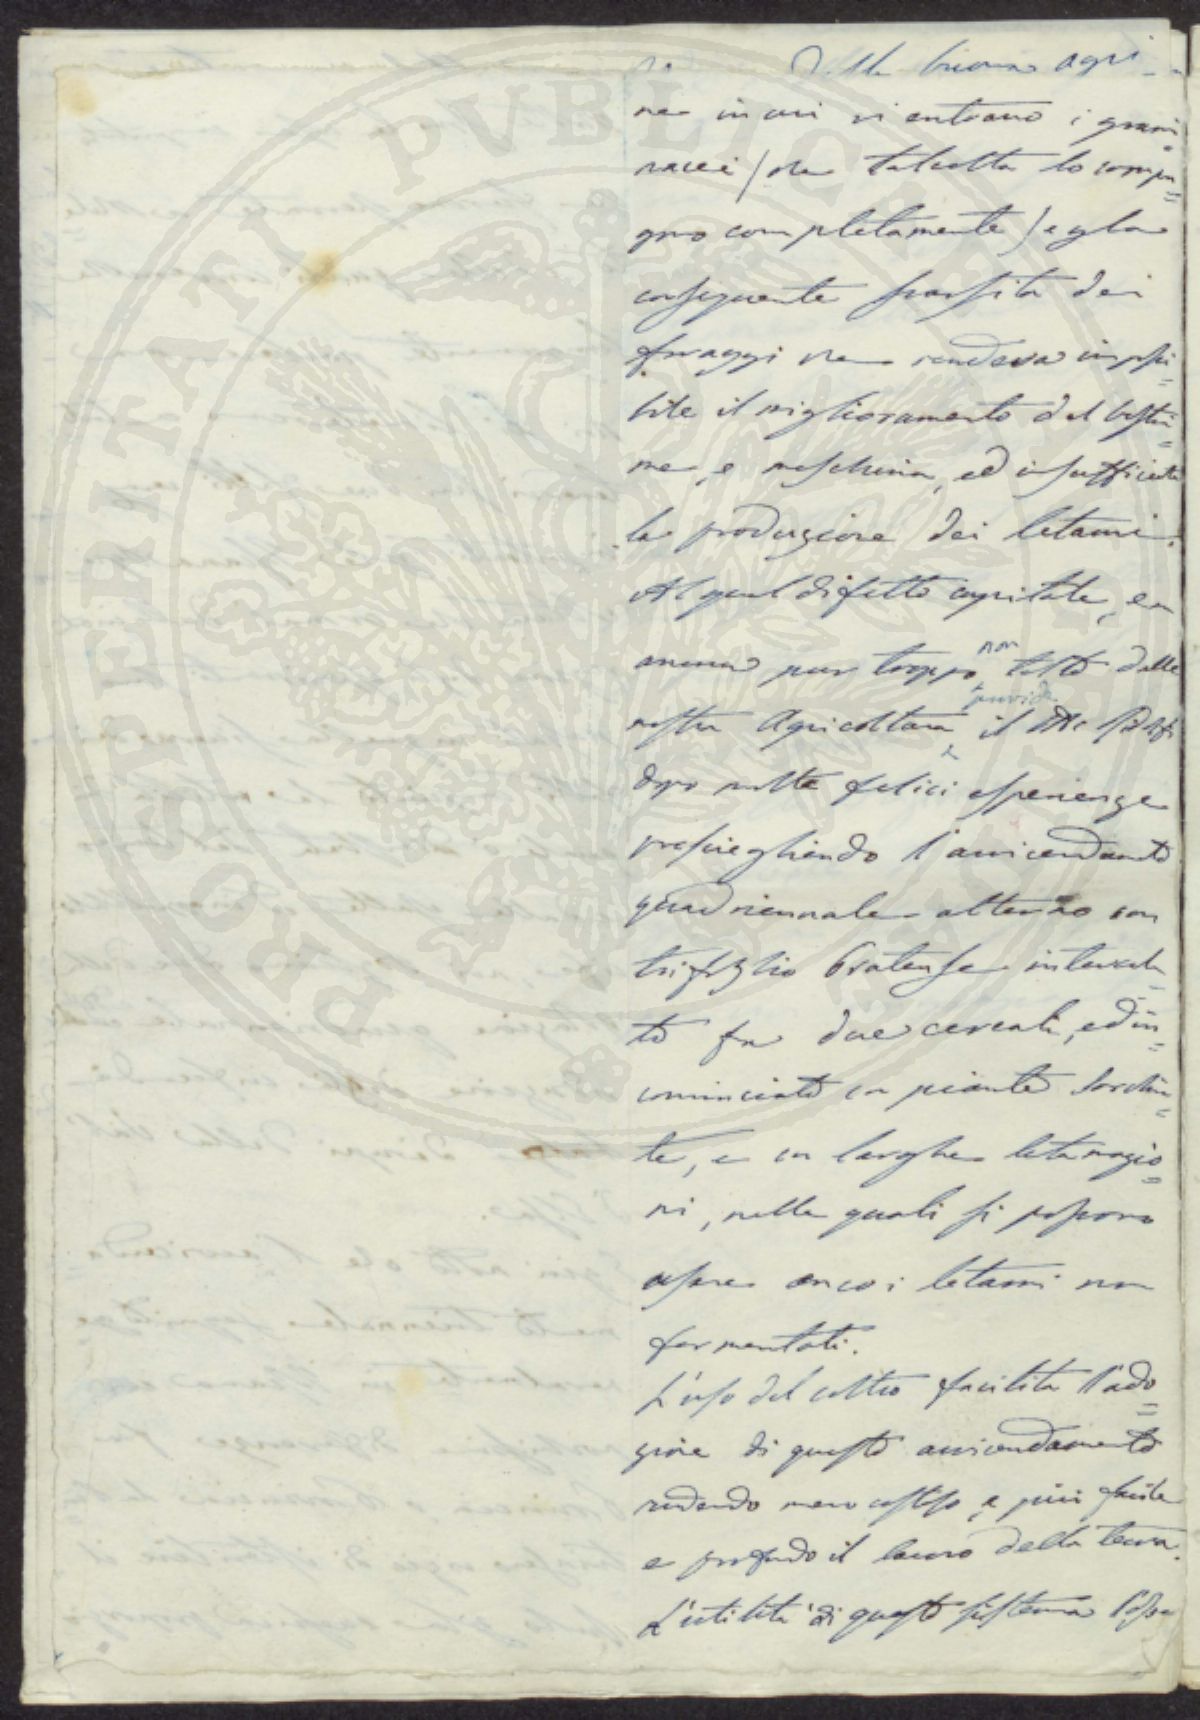 della buona agri=
ne in cui vi entrano i grani=
nacei (che talvolta lo compon=
gono completamente) e la
conseguente scarsità dei
foraggi ne rendeva impossi=
bile il miglioramento del bestia=
me, e meschina, ed insufficiente
la produzione dei letami.
Al qual difetto capitale, e
ancora pur troppo non tolto dalla
provvide
nostra Agricoltura il
dopo molte felici esperienze
presciegliendo l'avvicendamento
quadriennale alterno con
trifoglio Pratense intercala=
to fra due cereali, ed in=
cominciato con piante sarchia=
te, e con larghe letamagio=
ni, nelle quali si possono
usare anco i letami non
fermentati.
L'uso del coltro facilita l'ado=
zione di questo avvicendamento
rendendo meno costoso, e più facile
e profondo il lavoro della terra.
L'utilità di questo sistema
PROSPERITATI PUBLICAE